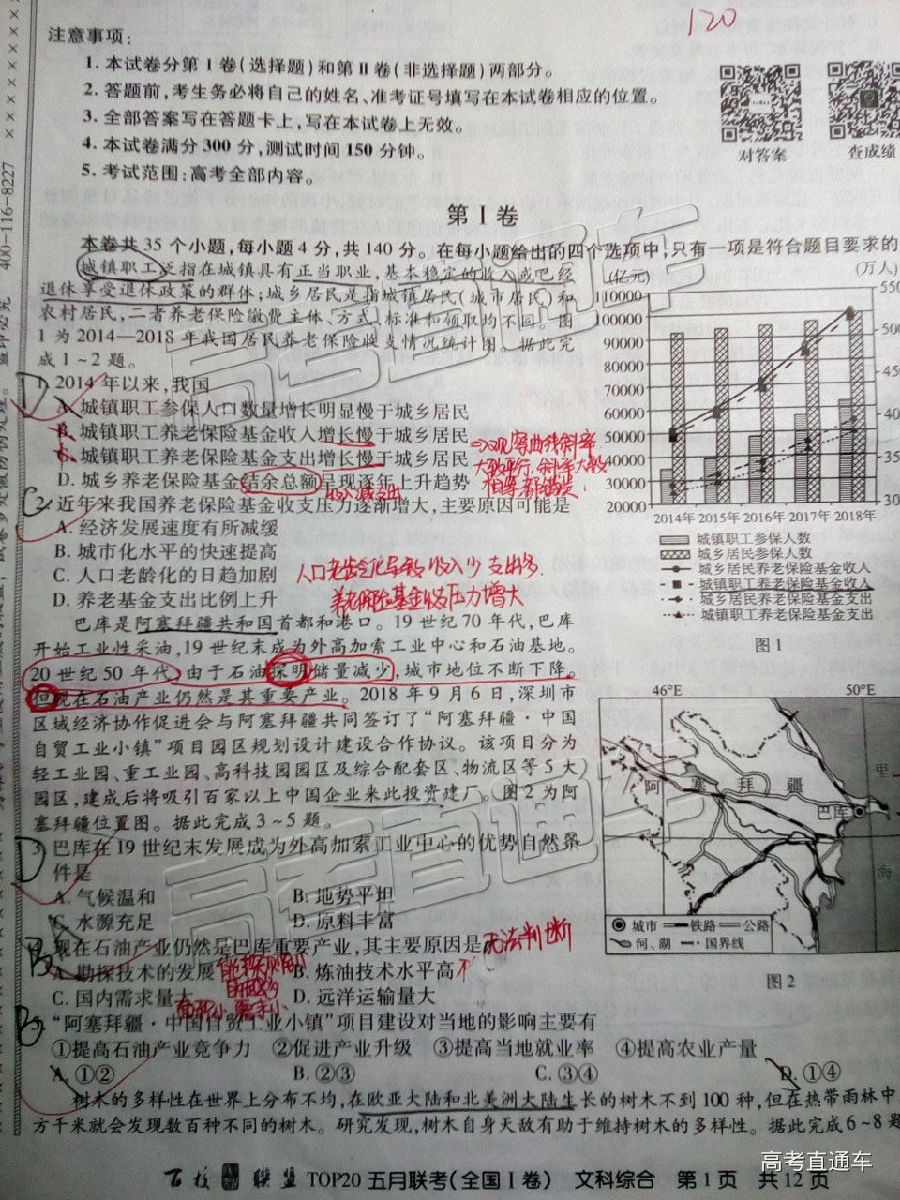 120
注意事项:
1. 本试卷分第Ⅰ卷(选择题)和第Ⅱ卷(非选择题)两部分。
2. 答题前,考生务必将自己的姓名、准考证号填写在本试卷相应的位置。
3. 全部答案写在答题卡上,写在本试卷上无效。
4. 本试卷满分 300 分,测试时间 150 分钟。
5. 考试范围:高考全部内容。
对答案
查成绩
400-116-8227
第Ⅰ卷
本卷共 35 个小题,每小题 4 分,共 140 分。在每小题给出的四个选项中,只有一项是符合题目要求的
城镇职工泛指在城镇具有正当职业,基本稳定的收入或已经
退休享受退休政策的群体;城乡居民是指城镇居民(城市居民)和
农村居民,二者养老保险缴费主体、方式、标准和领取均不同。图
1 为 2014—2018 年我国居民养老保险收支情况统计图。据此完
成 1~2 题。
D
1. 2014 年以来,我国
A. 城镇职工参保人口数量增长明显慢于城乡居民
B. 城镇职工养老保险基金收入增长慢于城乡居民
C. 城镇职工养老保险基金支出增长慢于城乡居民
D. 城乡养老保险基金结余总额呈现逐年上升趋势
收入减支出
C
2. 近年来我国养老保险基金收支压力逐渐增大,主要原因可能是
A. 经济发展速度有所减缓
B. 城市化水平的快速提高
C. 人口老龄化的日趋加剧
D. 养老基金支出比例上升
(亿元)
(万人)
110000
100000
90000
80000
70000
60000
50000
40000
30000
20000
2014年 2015年 2016年 2017年 2018年
城镇职工参保人数
城乡居民参保人数
城乡居民养老保险基金收入
城镇职工养老保险基金收入
城乡居民养老保险基金支出
城镇职工养老保险基金支出
图 1
巴库是阿塞拜疆共和国首都和港口。19 世纪 70 年代,巴库
开始工业性采油,19 世纪末成为外高加索工业中心和石油基地。
20 世纪 50 年代,由于石油探明储量减少,城市地位不断下降。
但现在石油产业仍然是其重要产业。2018 年 9 月 6 日,深圳市
区域经济协作促进会与阿塞拜疆共同签订了“阿塞拜疆·中国
自贸工业小镇”项目园区规划设计建设合作协议。该项目分为
轻工业园、重工业园、高科技园园区及综合配套区、物流区等 5 大
园区,建成后将吸引百家以上中国企业来此投资建厂。图 2 为阿
塞拜疆位置图。据此完成 3~5 题。
46°E
50°E
阿 塞 拜 疆
巴库
里
海
城市 铁路 公路
河、湖 国界线
图 2
D
3. 巴库在 19 世纪末发展成为外高加索工业中心的优势自然条
件是
A. 气候温和
B. 地势平坦
C. 水源充足
D. 原料丰富
4. 现在石油产业仍然是巴库重要产业,其主要原因是
无法判断
A. 勘探技术的发展
B. 炼油技术水平高
C. 国内需求量大
D. 远洋运输量大
5. “阿塞拜疆·中国自贸工业小镇”项目建设对当地的影响主要有
①提高石油产业竞争力 ②促进产业升级 ③提高当地就业率 ④提高农业产量
A. ①②
B. ②③
C. ③④
D. ①④
树木的多样性在世界上分布不均,在欧亚大陆和北美洲大陆生长的树木不到 100 种,但在热带雨林中
方千米就会发现数百种不同的树木。研究发现,树木自身天敌有助于维持树木的多样性。据此完成 6~8 题
百校 联盟 TOP20 五月联考(全国Ⅰ卷) 文科综合 第 1 页 共 12 页
高考直通车